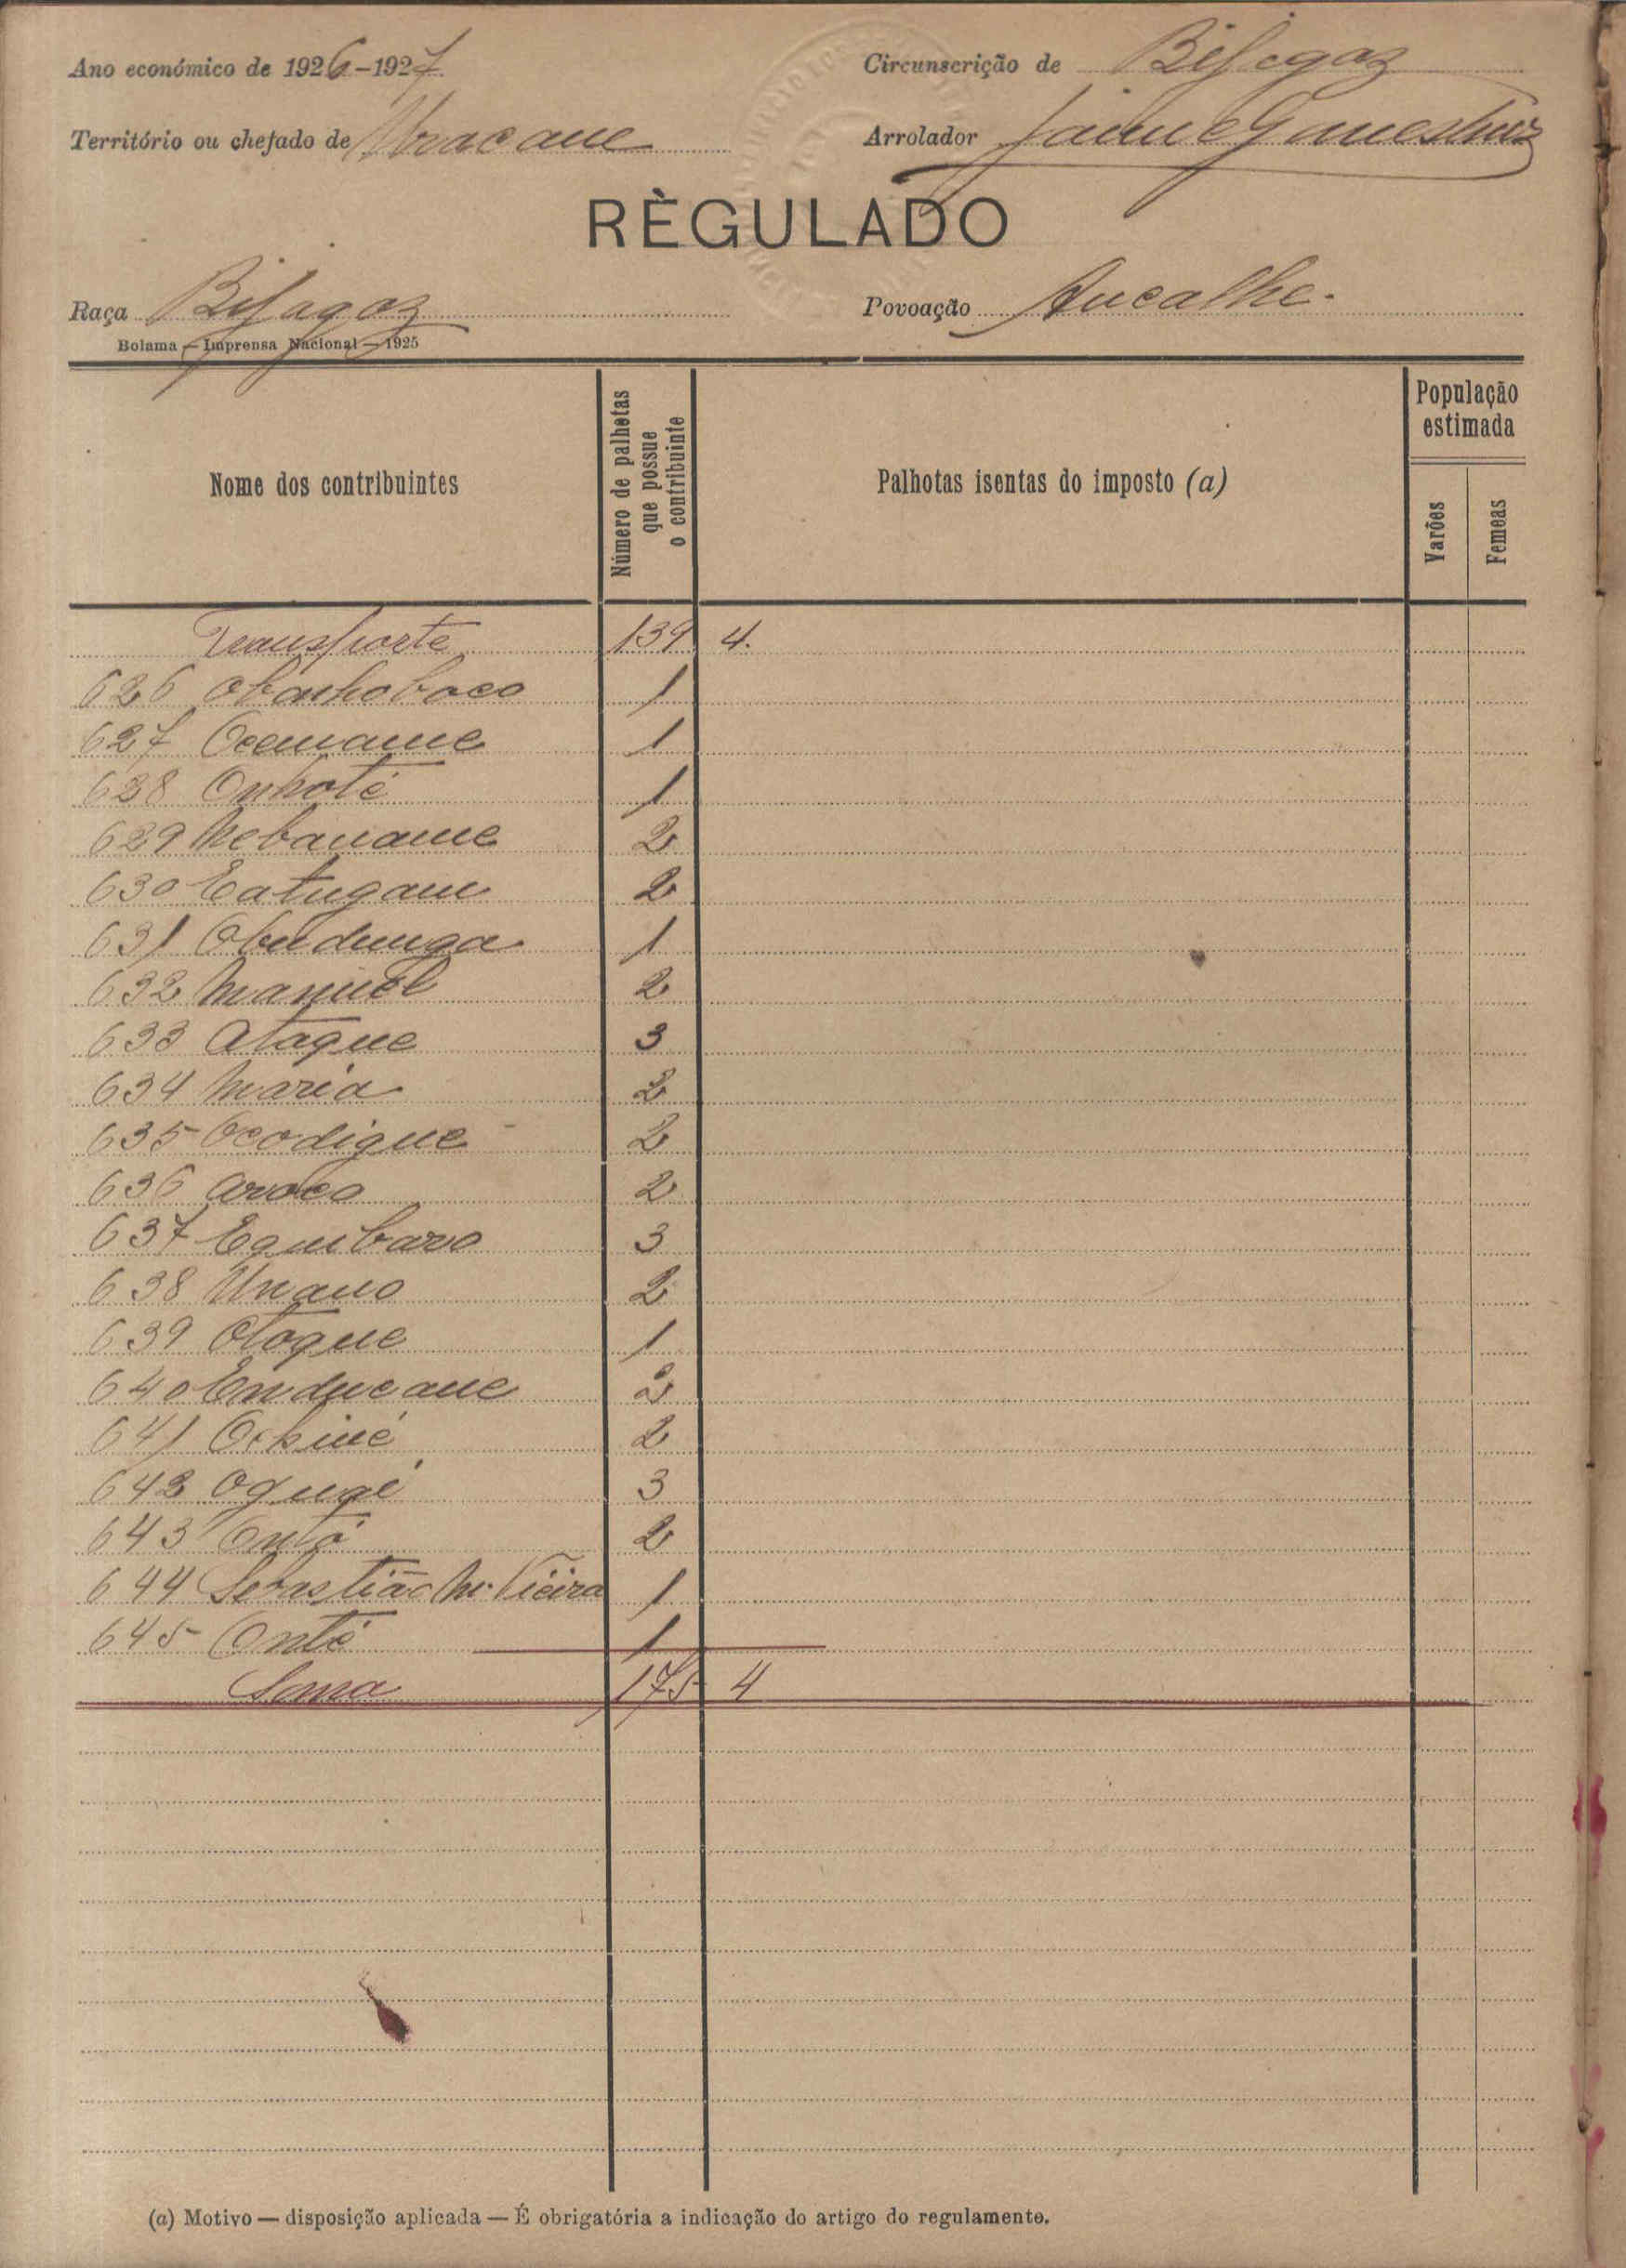 Ano económico de 1926-1927
Circunscrição de Bijagoz
Território ou chefado de Uracane
Arrolador Jaime
RÈGULADO
Raça Bijagoz
Povoação Ancalhe.
Bolama — Imprensa Nacional — 1925
Nome dos contribuintes
Número de palhotas que possue o contribuinte
Palhotas isentas do imposto (a)
População estimada
Varões
Femeas
Transporte 139 4.
626 1
627 1
628 Onhoté 1
629 Nebaname 2
630 Eatugam 2
631 Obudunga 1
632 Manuel 2
633 Ataque 3
634 Maria 2
635 Ocodigue 2
636 2
637 Equibaro 3
638 Unano 2
639 Otoque 1
640 Enducane 2
641 2
642 3
643 Ontó 2
644 Sebastião M. Vieira 1
645 Onté 1
Soma 175 4
(a) Motivo — disposição aplicada — É obrigatória a indicação do artigo do regulamento.